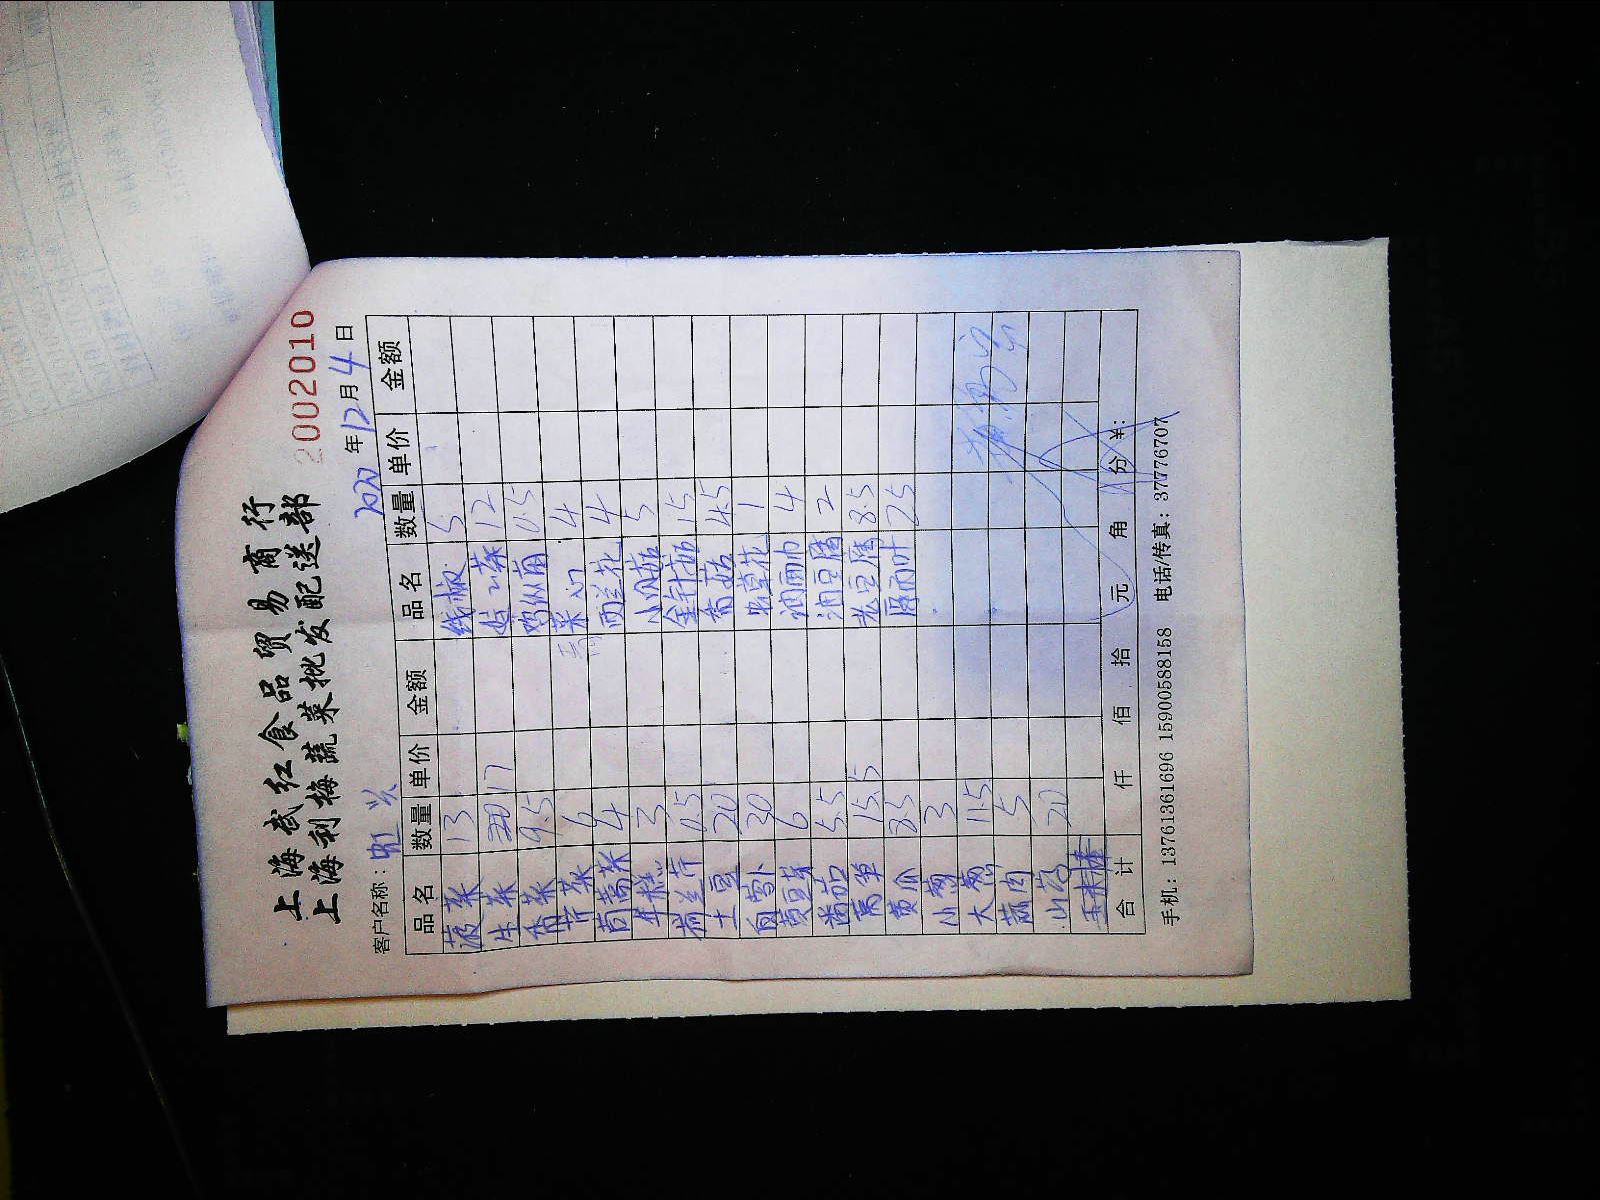 上海武红食品贸易商行
上海利梅蔬菜批发配送部
2002010
客户名称：虹兴 2020年12月4日
品名 数量 单价 金额 品名 数量 单价 金额
菠菜 13 线椒 5
生菜 17 娃娃菜 12
香菜 9.5
芹菜 6 菜心 4
茼蒿菜 4 西兰花 4
年糕 3 5
0.5 金针菇 15
土豆 20 香菇 4.5
白萝卜 30 虫草花 1
黄豆芽 6 油面巾 4
莴苣 5.5 油豆腐 2
15.5 老豆腐 8.5
黄瓜 8.5 25
小葱 3
大葱 11.5
蒜肉 5
山药 20
合计 仟 佰 拾 元 角 分 ¥:
手机：13761361696 15900588158 电话/传真：37776707